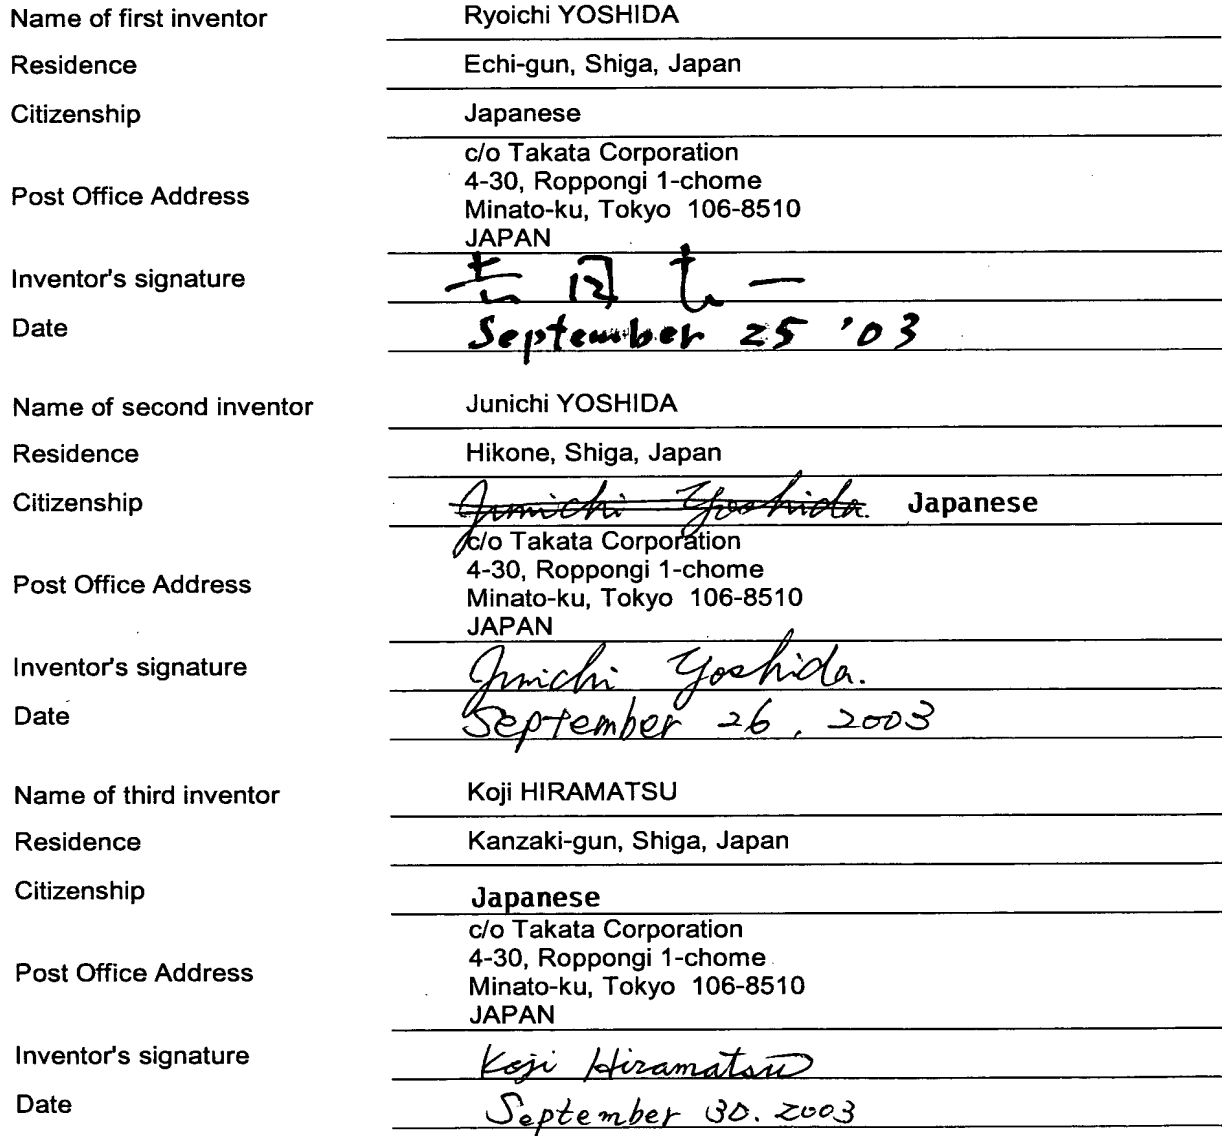 Name of first inventor Ryoichi YOSHIDA
Residence Echi-gun, Shiga, Japan
Citizenship Japanese
c/o Takata Corporation
4-30, Roppongi 1-chome
Post Office Address
Minato-ku, Tokyo 106-8510
JAPAN
Inventor's signature 吉田 良一
Date September 25 '03
Name of second inventor Junichi YOSHIDA
Residence Hikone, Shiga, Japan
Citizenship Junichi Yoshida. Japanese
c/o Takata Corporation
4-30, Roppongi 1-chome
Post Office Address
Minato-ku, Tokyo 106-8510
JAPAN
Inventor's signature Junichi Yoshida.
Date September 26, 2003
Name of third inventor Koji HIRAMATSU
Residence Kanzaki-gun, Shiga, Japan
Citizenship Japanese
c/o Takata Corporation
4-30, Roppongi 1-chome
Post Office Address
Minato-ku, Tokyo 106-8510
JAPAN
Inventor's signature Koji Hiramatsu
Date September 30. 2003